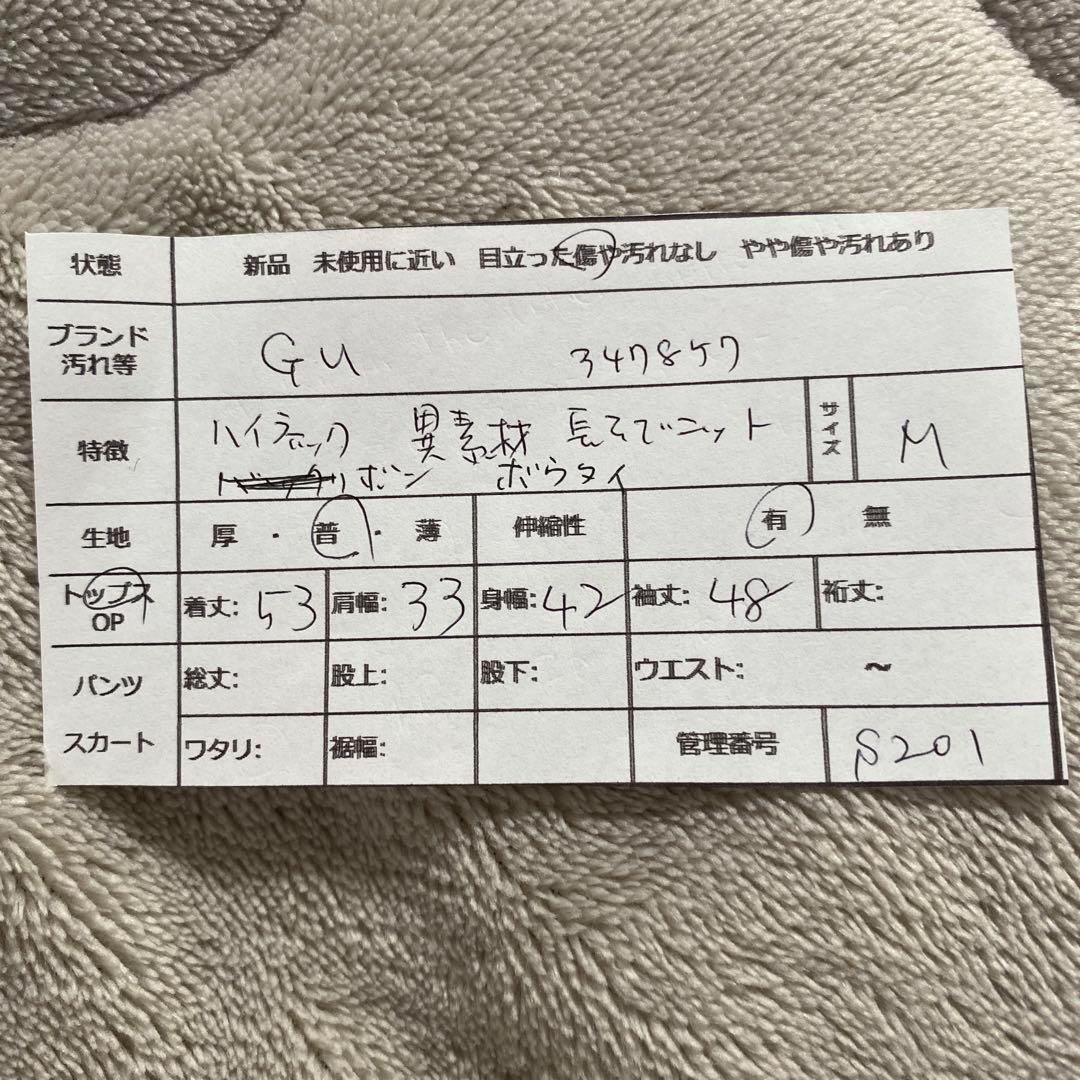 状態 新品 未使用に近い 目立った傷や汚れなし やや傷や汚れあり
ブランド
汚れ等 GU 347857
特徴 ハイネック 異素材 長そでニット サイズ M
リボン ボウタイ
生地 厚・普・薄 伸縮性 有 無
トップス
OP 着丈:53 肩幅:33 身幅:42 袖丈:48 裄丈:
パンツ 総丈: 股上: 股下: ウエスト: ~
スカート ワタリ: 裾幅: 管理番号 S201